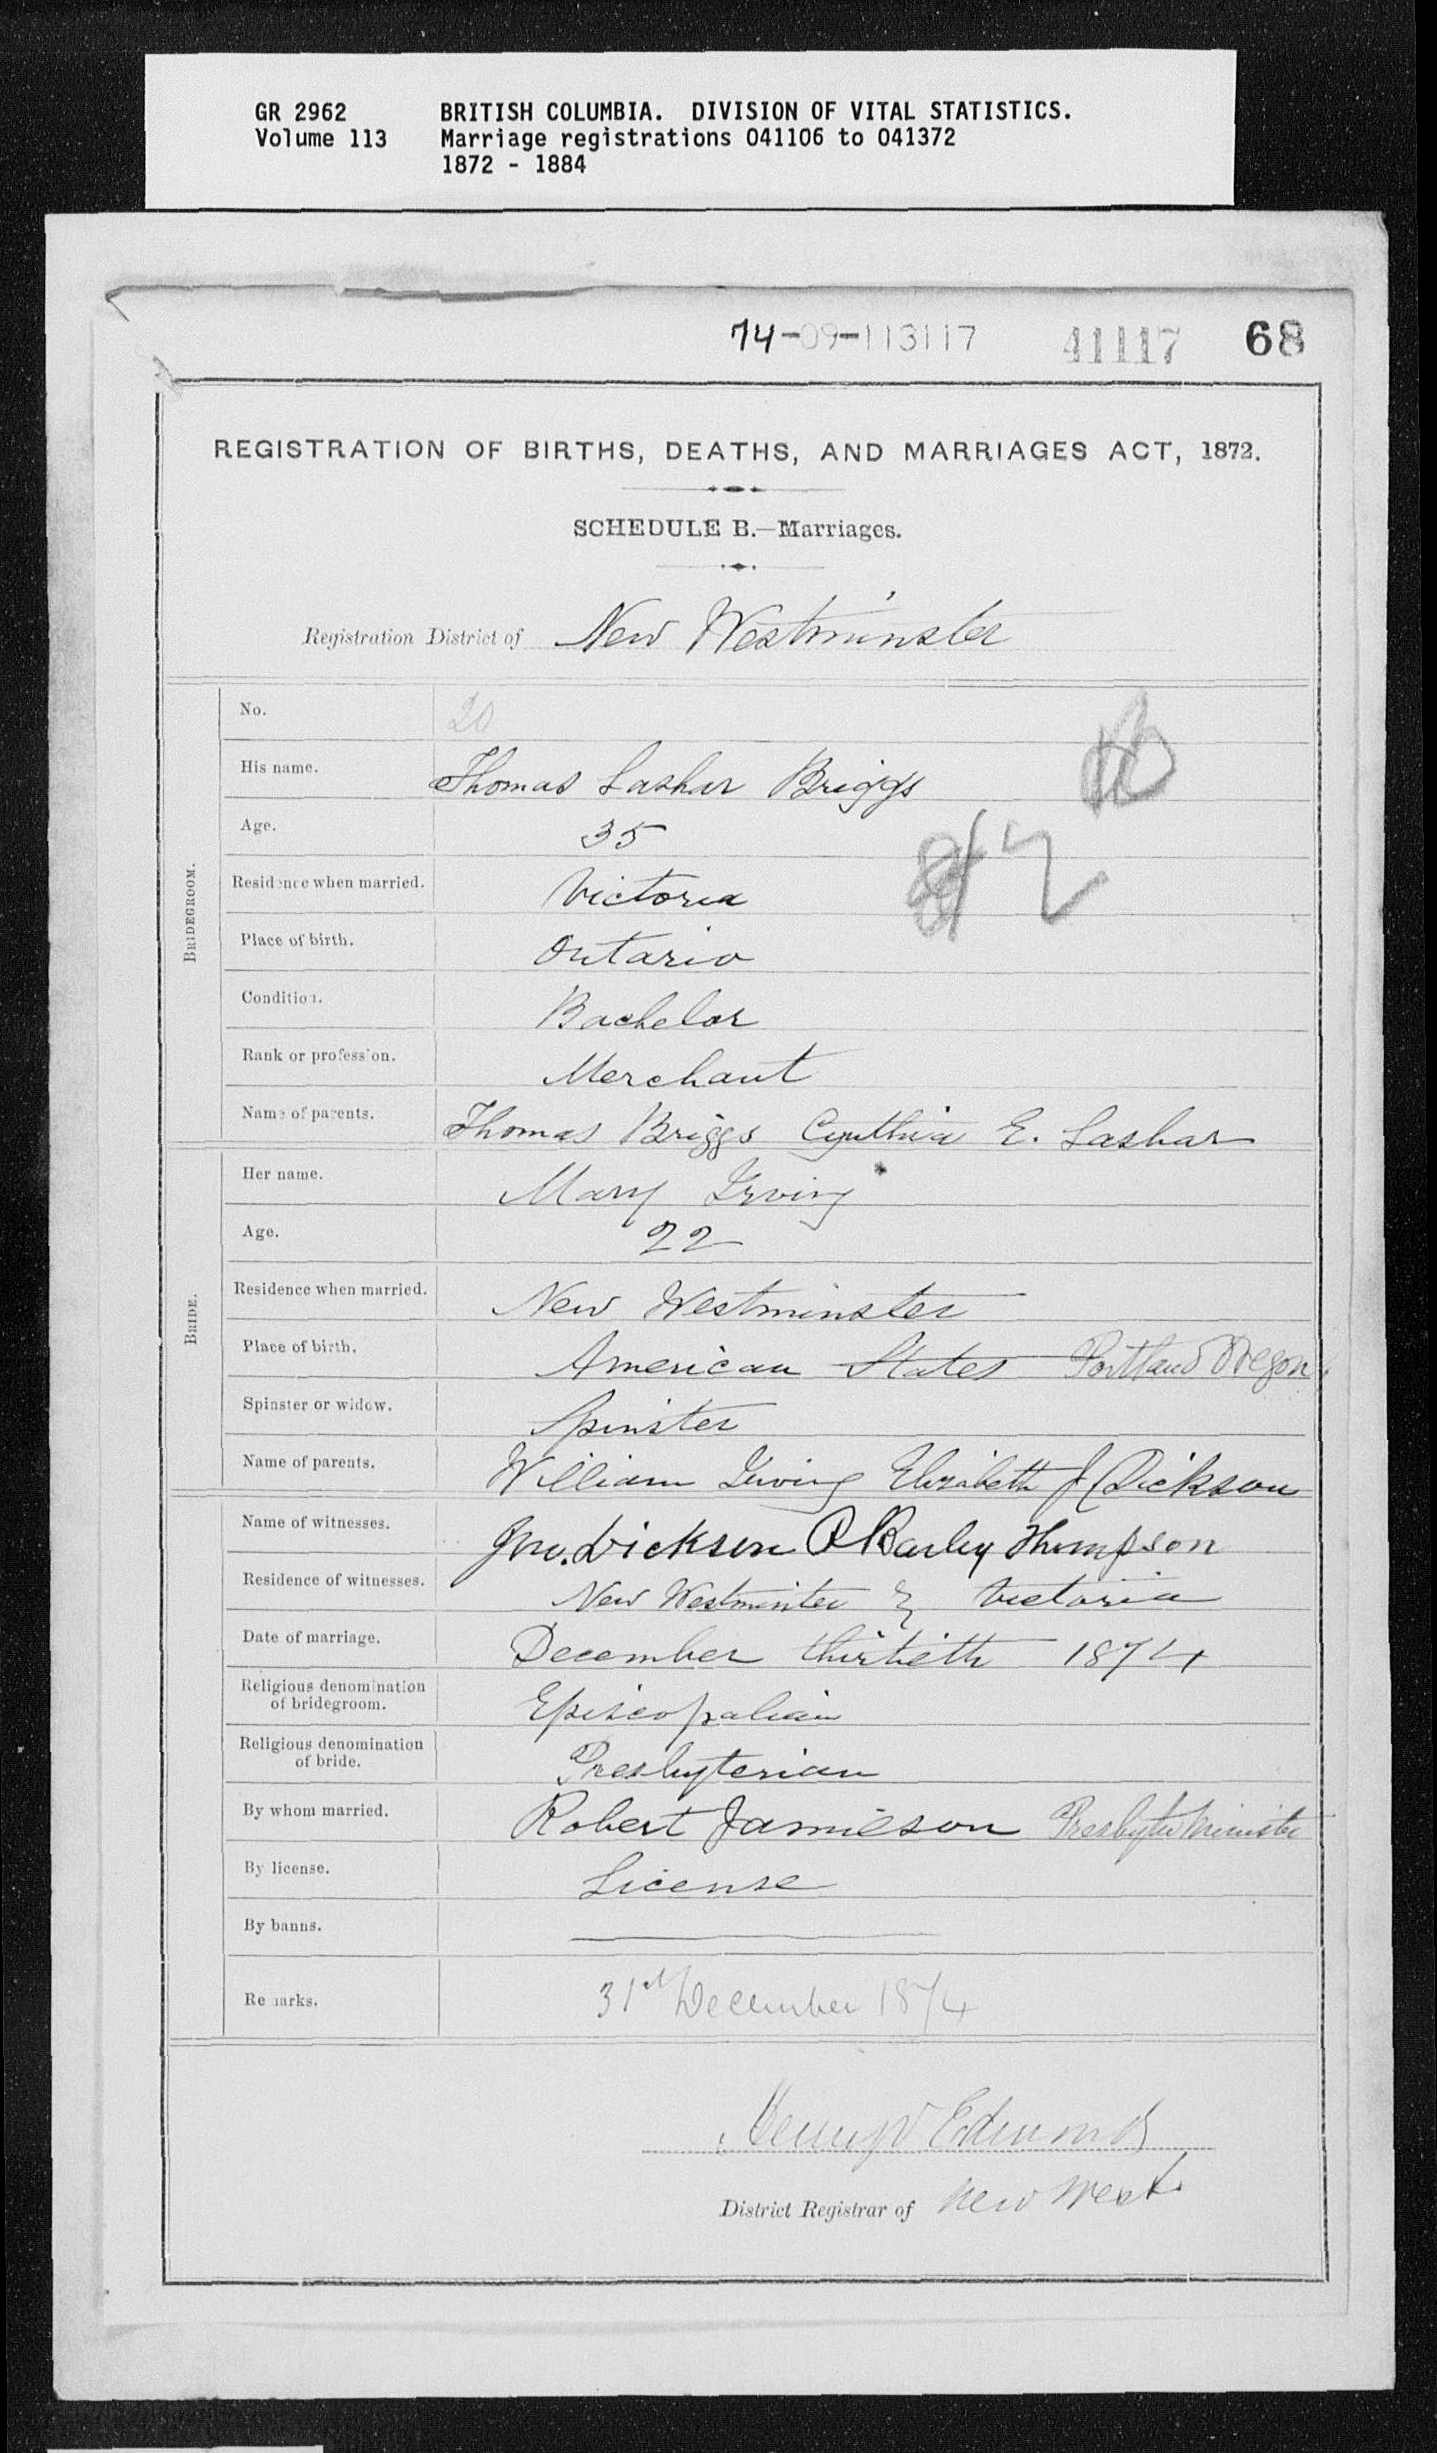 GR 2962 BRITISH COLUMBIA. DIVISION OF VITAL STATISTICS.
Volume 113 Marriage registrations 041106 to 041372
1872 - 1884
74-09-113117 41117 68
REGISTRATION OF BIRTHS, DEATHS, AND MARRIAGES ACT, 1872.
SCHEDULE B.—Marriages.
Registration District of New Westminster
BRIDEGROOM.
No. 20
His name. Thomas Lashar Briggs
Age. 35
Residence when married. Victoria
Place of birth. Ontario
Condition. Bachelor
Rank or profession. Merchant
Name of parents. Thomas Briggs Cynthia E. Lashar
BRIDE.
Her name. Mary Irving
Age. 22
Residence when married. New Westminster
Place of birth. American States Portland Oregon
Spinster or widow. Spinster
Name of parents. William Irving Elizabeth J Dickson
Name of witnesses. Jno. Dickson Thompson
Residence of witnesses. New Westminster & Victoria
Date of marriage. December thirtieth 1874
Religious denomination
of bridegroom. Episcopalian
Religious denomination
of bride. Presbyterian
By whom married. Robert Jamieson Presbyter Minister
By license. License
By banns.
Remarks. 31st December 1874
Edmonds
District Registrar of New West.